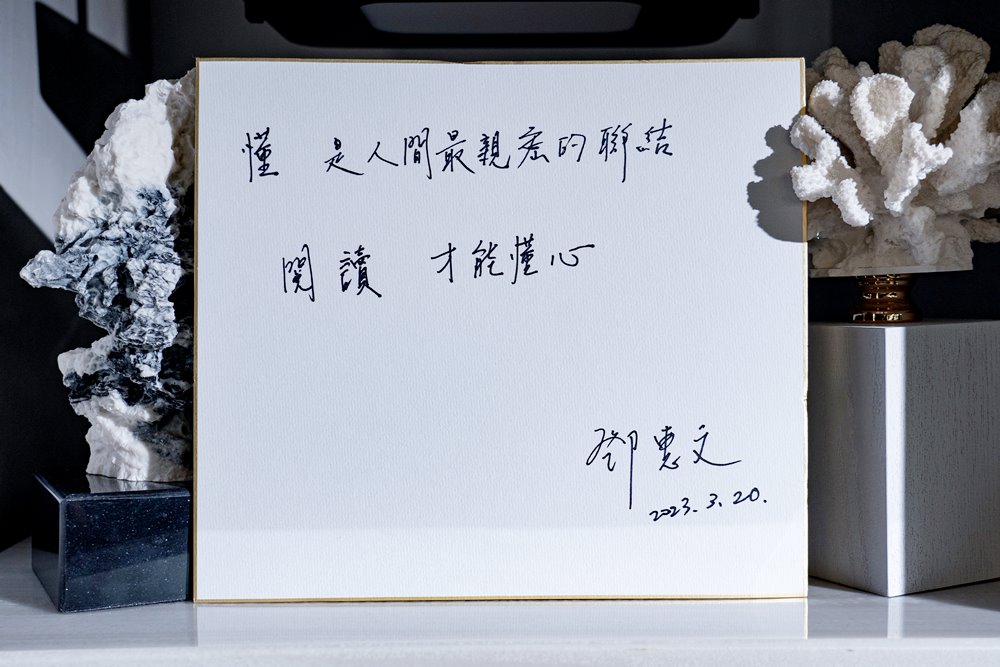 懂 是人間最親密的聯結
閱讀 才能懂心
鄧惠文
2023.3.20.